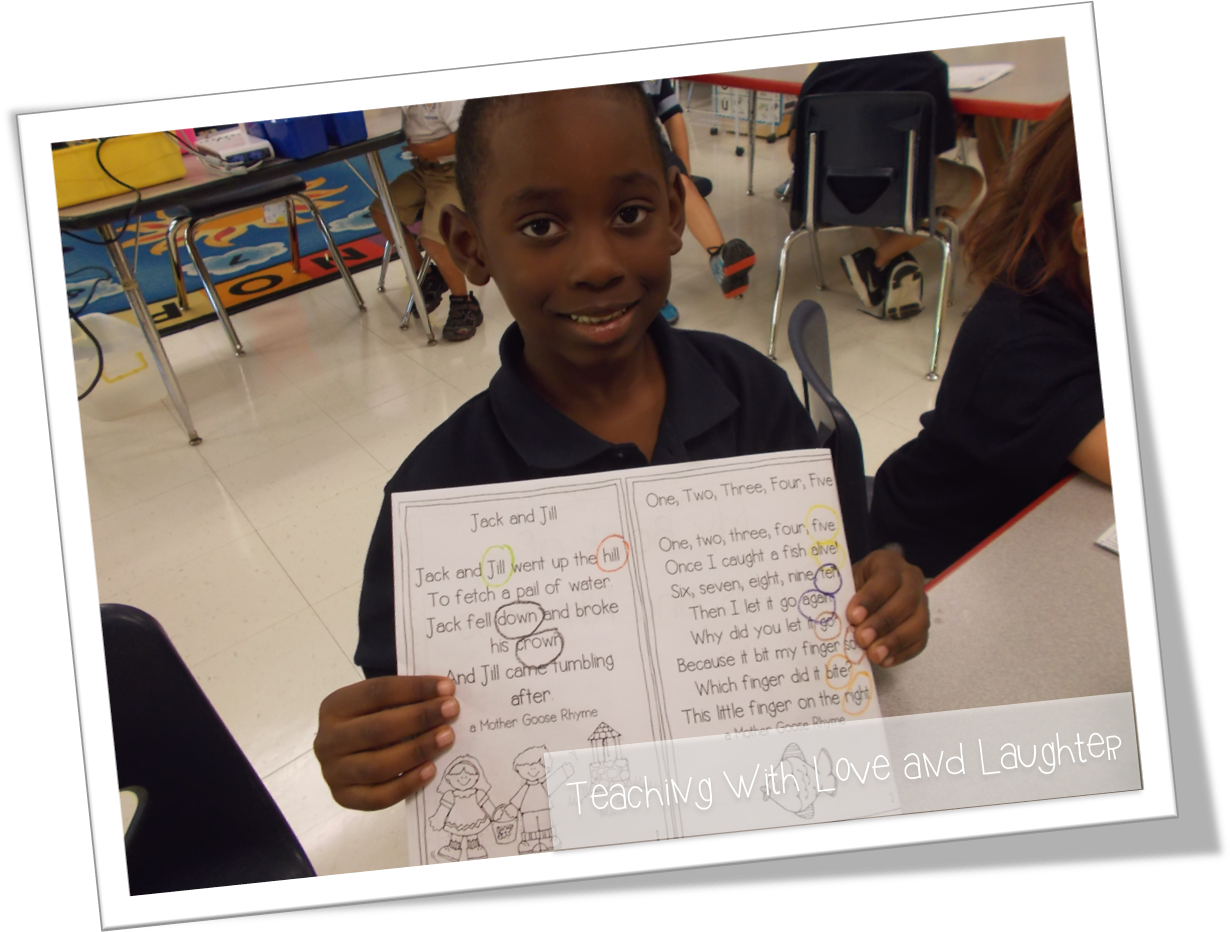 Jack and Jill
Jack and Jill went up the hill
To fetch a pail of water.
Jack fell down and broke
his crown
And Jill came tumbling
after.
a Mother Goose Rhyme
One, Two, Three, Four, Five
One, two, three, four, five
Once I caught a fish alive!
Six, seven, eight, nine, ten
Then I let it go again
Why did you let it go?
Because it bit my finger so
Which finger did it bite?
This little finger on the right.
a Mother Goose Rhyme
Teaching With Love and Laughter